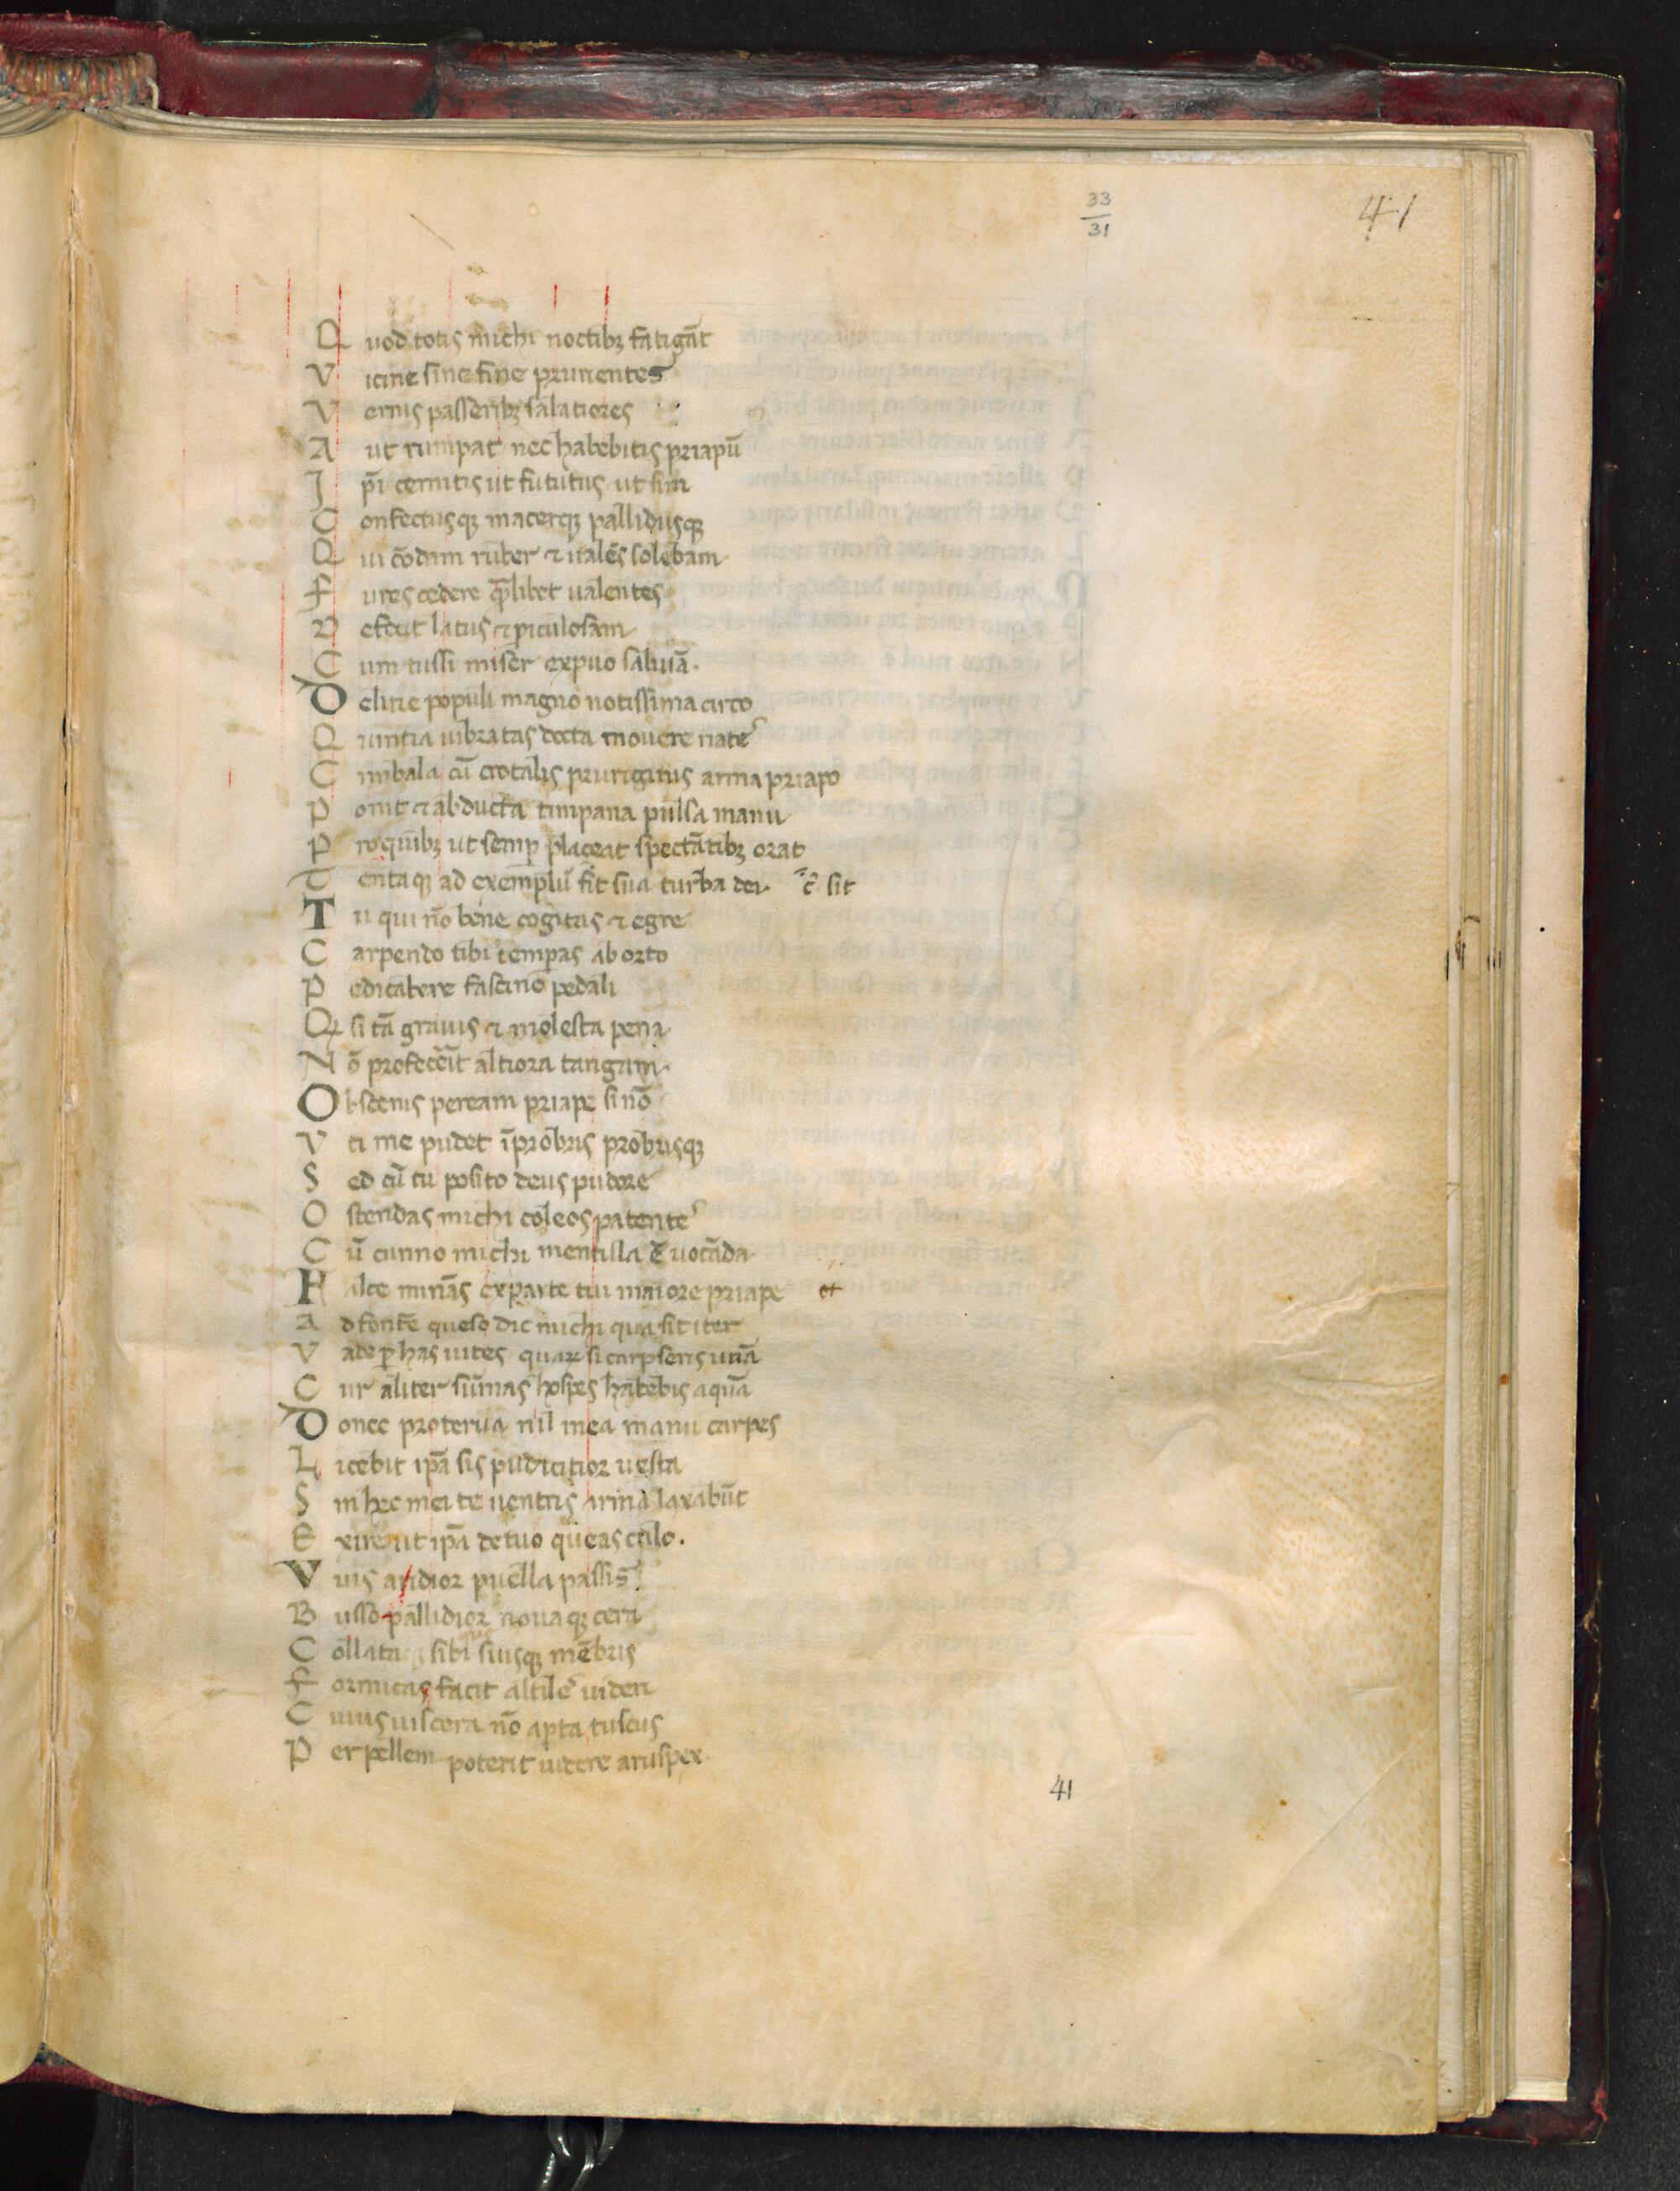 33
31
41
Quod totis michi noctibꝫ fatigāt
Vicine sine fine prurientes
Vernis passeribꝫ salatiores
Aut rumpar nec habebitis priapū
Ip̄i cernitis ut fututus ut sim
Confectusqꝫ macerqꝫ pallidusqꝫ
Qui c̄odam ruber ⁊ ualēs solebam
Fures cedere q̄libet ualentes
Defecit latus ⁊ periculosam
Cum tussi miser expuo saliuā.
Delitie populi magno notissima circo
Quintia uibratas docta mouere nates
Cimbala cū crotalis pruriginis arma priapo
Ponit ⁊ abducta timpana pulsa manu
Pro quibꝫ ut semꝑ placeat spectātibꝫ orat
Tentaqꝫ ad exemplū fit sua turba dei. sit
Tu qui nō bene cogitas ⁊ egre
Carpendo tibi temperas ab orto
Pedicabere fascino pedali
Qꝫ si tā grauis ⁊ molesta pena
Nō profecerit altiora tangam.
Obscenis peream priape si nō
Vti me pudet īprobris probrisqꝫ
Sed cū tu posito deus pudore
Ostendas michi coleos patentes
Cū cunno michi mentula ē uocāda
Falce minās ex parte tui maiore priape et
Ad fontē queso dic michi qua sit iter
Vade ꝑ has uites quaꝝ si carpseris unā
Cur aliter sūmas hospes habebis aquā
Donec proterua nil mea manu carpes
Licebit ip̄a sis pudicitior uesta
Sin hec mei te uentris arma laxabūt
Exire ut ip̄a de tuo queas culo.
Vuis aridior puella passis
Busso pallidior nouaqꝫ cera
Collata sibi suisqꝫ mēbris
Formicas facit altiles uideri
Cuius uiscera nō aperta tuscus
Per pellem poterit uidere aruspex
41